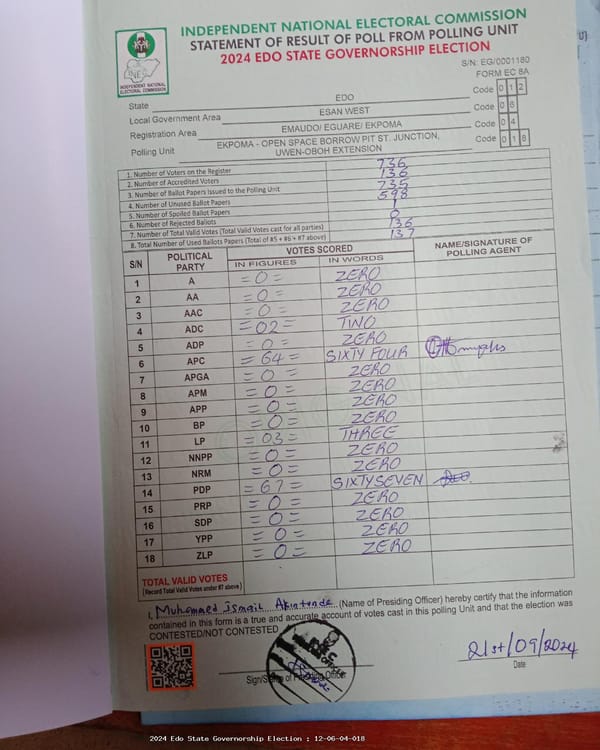 INDEPENDENT NATIONAL ELECTORAL COMMISSION
STATEMENT OF RESULT OF POLL FROM POLLING UNIT
2024 EDO STATE GOVERNORSHIP ELECTION
INEC
INDEPENDENT NATIONAL
ELECTORAL COMMISSION
S/N: EG/0001180
FORM EC 8A
State EDO Code 0 1 2
Local Government Area ESAN WEST Code 0 6
Registration Area EMAUDO/ EGUARE/ EKPOMA Code 0 4
Polling Unit EKPOMA - OPEN SPACE BORROW PIT ST. JUNCTION, UWEN-OBOH EXTENSION Code 0 1 8
1. Number of Voters on the Register 736
2. Number of Accredited Voters 136
3. Number of Ballot Papers Issued to the Polling Unit 735
4. Number of Unused Ballot Papers 598
5. Number of Spoiled Ballot Papers 1
6. Number of Rejected Ballots 0
7. Number of Total Valid Votes (Total Valid Votes cast for all parties) 136
8. Total Number of Used Ballots Papers (Total of #5 + #6 + #7 above) 137
S/N POLITICAL PARTY VOTES SCORED NAME/SIGNATURE OF POLLING AGENT
IN FIGURES IN WORDS
1 A =0= ZERO
2 AA =0= ZERO
3 AAC =0= ZERO
4 ADC =02= TWO
5 ADP =0= ZERO
6 APC =64= SIXTY FOUR
7 APGA =0= ZERO
8 APM =0= ZERO
9 APP =0= ZERO
10 BP =0= ZERO
11 LP =03= THREE
12 NNPP =0= ZERO
13 NRM =0= ZERO
14 PDP =67= SIXTY SEVEN
15 PRP =0= ZERO
16 SDP =0= ZERO
17 YPP =0= ZERO
18 ZLP =0= ZERO
TOTAL VALID VOTES
(Record Total Valid Votes under #7 above)
I, Muhammed ismail Akintunde (Name of Presiding Officer) hereby certify that the information
contained in this form is a true and accurate account of votes cast in this polling Unit and that the election was
CONTESTED/NOT CONTESTED
21st/09/2024
Sign/Stamp of Presiding Officer Date
2024 Edo State Governorship Election : 12-06-04-018